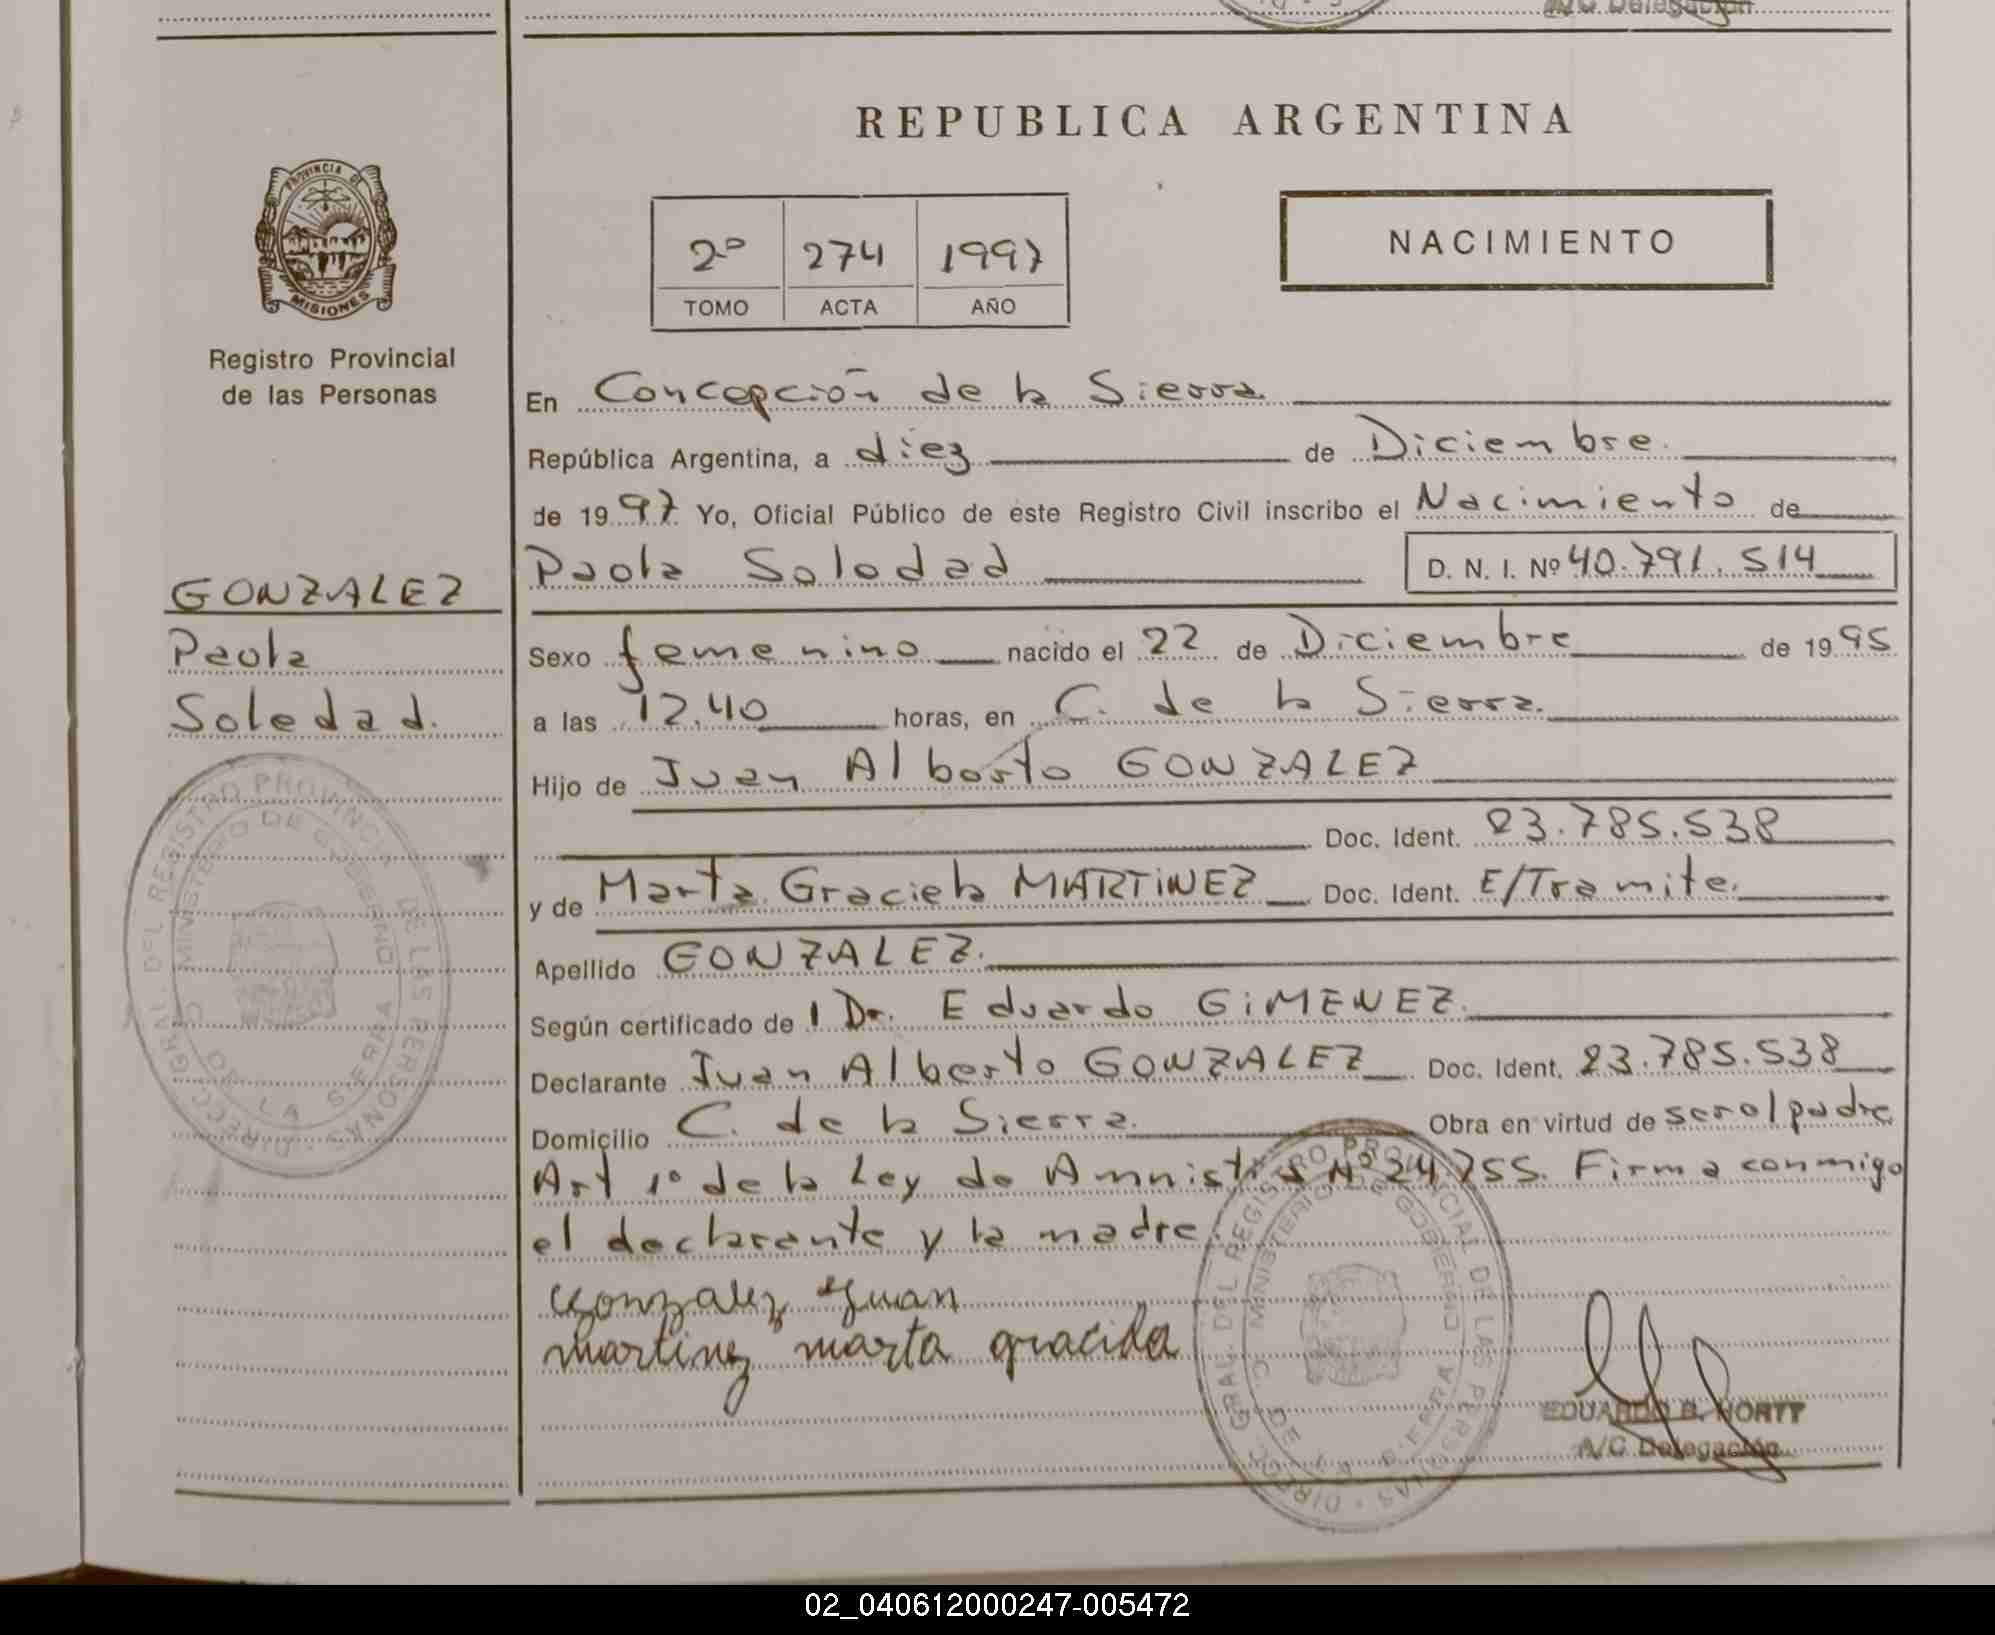 A/C Delegación
REPUBLICA ARGENTINA
PROVINCIA DE MISIONES
2º 274 1997
TOMO ACTA AÑO
NACIMIENTO
Registro Provincial
de las Personas
En Concepción de la Sierra
República Argentina, a diez de Diciembre.
de 1997. Yo, Oficial Público de este Registro Civil inscribo el Nacimiento de
Paola Soledad D. N. I. Nº 40.791.514
GONZALEZ
Paola
Soledad.
Sexo femenino nacido el 22 de Diciembre de 1995
a las 12.40 horas, en C. de la Sierra.
Hijo de Juan Alberto GONZALEZ
Doc. Ident. 23.785.538
y de Marta Graciela MARTiNEZ Doc. Ident. E/Tramite.
Apellido GONZALEZ.
Según certificado de l Dr. Eduardo GiMENEZ.
Declarante Juan Alberto GONZALEZ Doc. Ident. 23.785.538
Domicilio C. de la Sierra. Obra en virtud de ser el padre
Art 1º de la Ley de Amnistia Nº 24.755. Firma conmigo
el declarante y la madre.
Gonzalez Juan
martinez marta graciela
DIRECC. GRAL. DEL REGISTRO PROVINCIAL DE LAS PERSONAS
MINISTERIO DE GOBIERNO
C. DE LA SIERRA
DIRECC. GRAL. DEL REGISTRO PROVINCIAL DE LAS PERSONAS
MINISTERIO DE GOBIERNO
C. DE LA SIERRA
EDUARDO B. HORTT
A/C Delegación
02_040612000247-005472